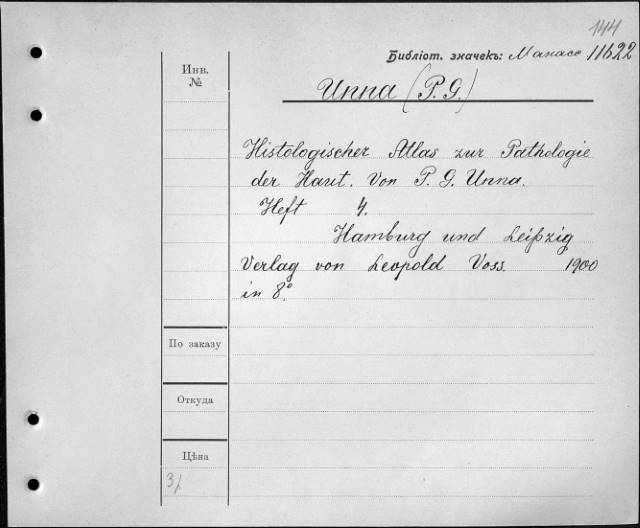 144
Библіот. значекъ: Манасе 11622
Инв.
№
Unna (P. G.)
Histologischer Atlas zur Pathologie
der Haut. Von P. G. Unna.
Heft 4.
Hamburg und Leipzig
Verlag von Leopold Voss. 1900
in 8°.
По заказу
Откуда
Цѣна
3